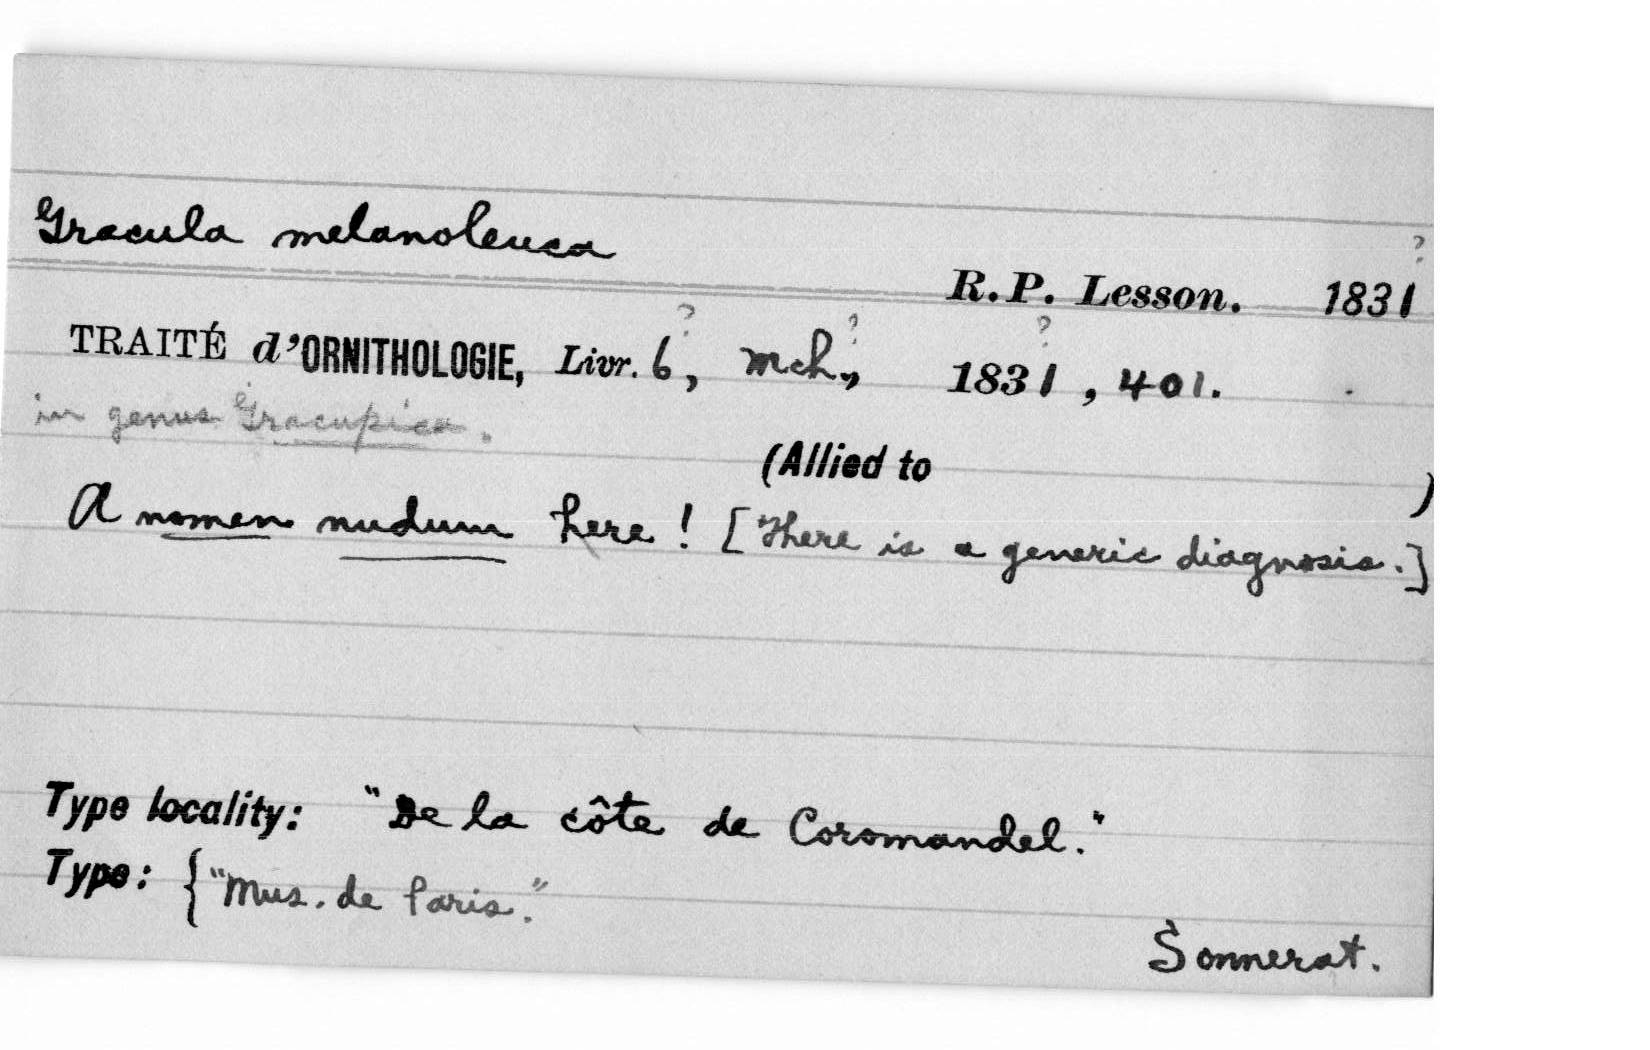 Gracula melanoleuca
?
R.P. Lesson. 1831
? ? ?
TRAITÉ d'ORNITHOLOGIE, Livr. 6, Mch., 1831, 401.
in genus Gracupica.
(Allied to )
A nomen nudum here! [There is a generic diagnosis.]
Type locality: "De la côte de Coromandel."
Type: { "Mus. de Paris."
Sonnerat.